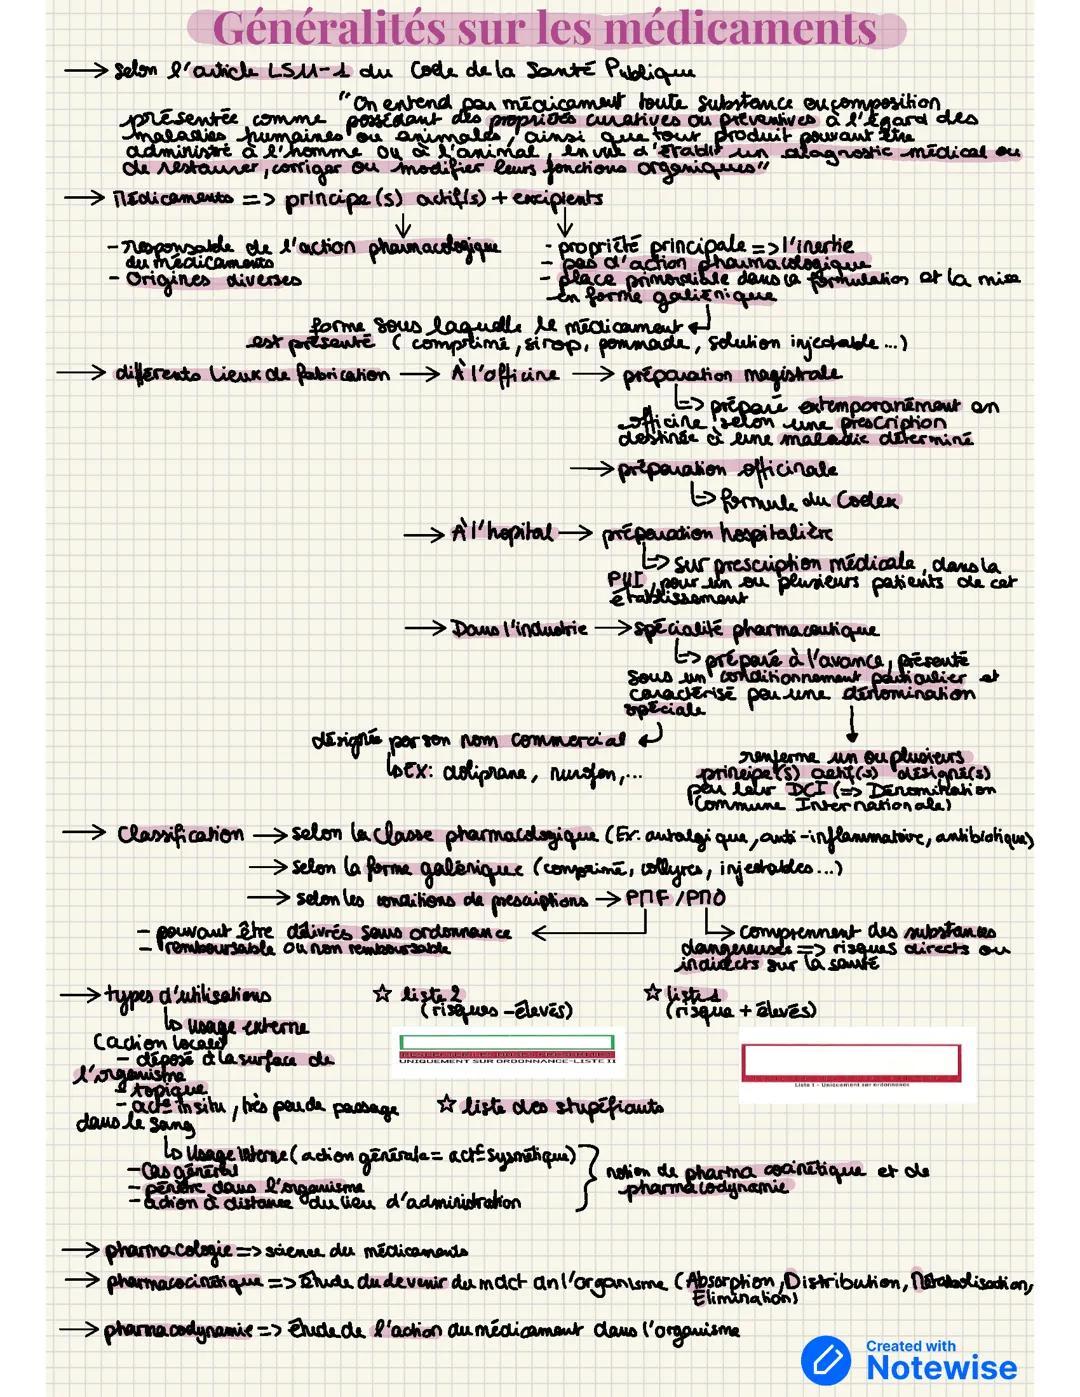 Généralités sur les médicaments
→ selon l'article L511-1 du Code de la Santé Publique
"On entend par médicament toute substance ou composition
présentée comme possédant des propriétés curatives ou préventives à l'égard des
maladies humaines ou animales, ainsi que tout produit pouvant être
administré à l'homme ou à l'animal, en vue d'établir un diagnostic médical ou
de restaurer, corriger ou modifier leurs fonctions organiques"
→ Médicaments => principe(s) actif(s) + excipients
- responsable de l'action pharmacologique
du médicaments
- Origines diverses
- propriété principale => l'inertie
- pas d'action pharmacologique
- place primordiale dans la formulation et la mise
en forme galiénique
forme sous laquelle le médicament
est présenté (comprimé, sirop, pommade, solution injectable...)
→ différents lieux de fabrication → À l'officine → préparation magistrale
=> préparé extemporanément en
officine selon une prescription
destinée à une maladie déterminé
→ préparation officinale
=> formule du Codex
→ À l'hopital → préparation hospitalière
=> sur prescription médicale, dans la
PUI, pour un ou plusieurs patients de cet
établissement
→ Dans l'industrie → spécialité pharmaceutique
=> préparé à l'avance, présenté
sous un conditionnement particulier et
caractérisé par une dénomination
spéciale
désignée par son nom commercial
↳ EX: doliprane, nurofen,...
renferme un ou plusieurs
principe(s) actif(s) désigné(s)
par leur DCI (=> Dénomination
Commune Internationale)
→ Classification → selon la classe pharmacologique (Ex: antalgique, anti-inflammatoire, antibiotique)
→ selon la forme galénique (comprimé, collyres, injectables...)
→ selon les conditions de prescriptions → PMF / PMO
- pouvant être délivrés sans ordonnance
- remboursable ou non remboursable
→ comprennent des substances
dangereuses => risques directs ou
indirects sur la santé
→ types d'utilisations
☆ liste 2
(risques - élevés)
☆ liste 1
(risque + élevés)
↳ usage externe
(action locale)
- déposé à la surface de
l'organisme
- topique
- act° in situ, très peu de passage
dans le sang
UNIQUEMENT SUR ORDONNANCE-LISTE II
Liste I - Uniquement sur ordonnance
☆ liste des stupéfiants
↳ Usage interne (action générale = act° systémique)
- Cas général
- pénètre dans l'organisme
- action à distance du lieu d'administration
notion de pharmacocinétique et de
pharmacodynamie
→ pharmacologie => science du médicaments
→ pharmacocinétique => Étude du devenir du mdct dn l'organisme (Absorption, Distribution, Métabolisation,
Elimination)
→ pharmacodynamie => Étude de l'action du médicament dans l'organisme
Created with
Notewise